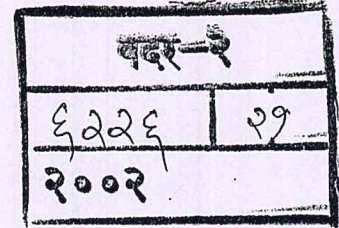 वदर-२
६२२६ २१
२००२